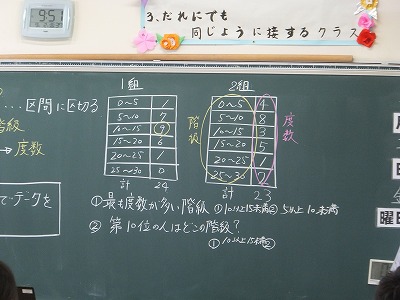 3、だれにでも
同じように接するクラス
1組
0～5 1
5～10 7
10～15 9
15～20 6
20～25 1
25～30 0
計 24
2組
0～5 4
5～10 8
10～15 3
15～20 5
20～25 1
25～30 2
計 23
階級
度数
・・・区間に区切る
階級
→ 度数
データを
①最も度数が多い階級 ①10以上15未満 ② 5以上10未満
② 第10位の人はどこの階級?
①10以上15未満 ②
曜日